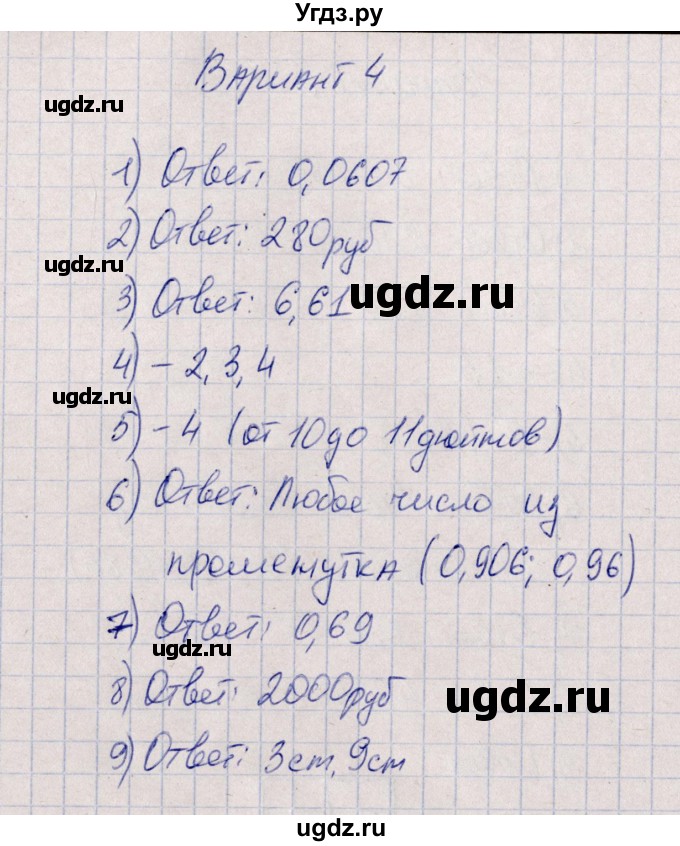 Угдз.ру
Вариант 4
ugdz.ru
1) Ответ: 0,0607
2) Ответ: 280руб
ugdz.ru
3) Ответ: 6,61
ugdz.ru
4) - 2, 3, 4
ugdz.ru
5) - 4 (от 10 до 11 дюймов)
6) Ответ: Любое число из
промежутка (0,906; 0,96)
7) Ответ: 0,69
ugdz.ru
8) Ответ: 2000руб
ugdz.ru
9) Ответ: 3 cm, 9 cm
ugdz.ru